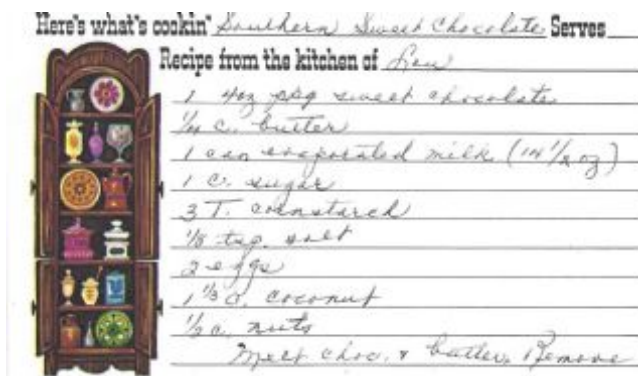 Here's what's cookin' Southern Sweet Chocolate Serves
Recipe from the kitchen of Lou
1 4oz pkg sweet chocolate
1/4 c. butter
1 can evaporated milk (14 1/2 oz)
1 c. sugar
3 T. cornstarch
1/8 tsp. salt
2 eggs
1 1/3 c. coconut
1/2 c. nuts
Melt choc. & butter. Remove